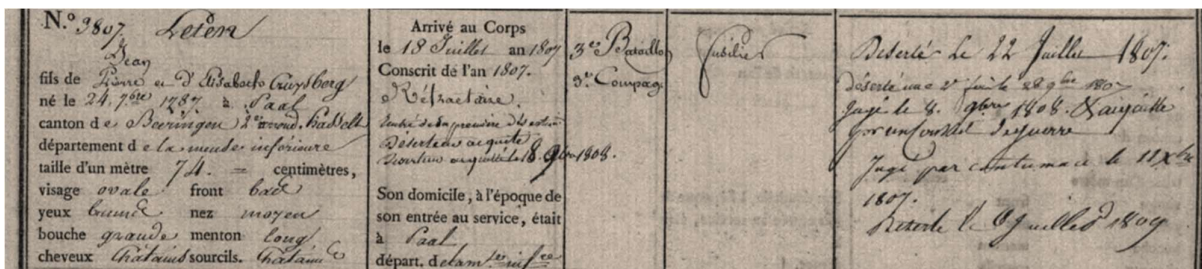 N.º 3807. Leten
Jean
fils de Pierre et d'Elisabeth Cruysberg
né le 24. 7bre 1787 à Paal
canton de Beeringen 2e arrond. hasselt
département de la meuse inférieure
taille d'un mètre 74. = centimètres,
visage ovale front bas
yeux bruns nez moyen
bouche grande menton long
cheveux Châtains sourcils. Chatains
Arrivé au Corps
le 18 Juillet an 1807
Conscrit de l'an 1807.
Réfractaire.
Rentré de sa première désertion
Déserteur acquité
Déserteur acquitté le 8. 9bre 1808.
Son domicile, à l'époque de
son entrée au service, était
à Paal
départ. de la m.se inf.re
3e Bataillon
3e Compag.
fusilier
Déserté le 22 Juillet 1807.
déserté une 2e fois le 28 9bre 1807
Jugé le 8. 9bre 1808. & acquitté
par un Conseil de guerre
Jugé par contumace le 11 Xbre
1807.
Déserté le 6 juillet 1809